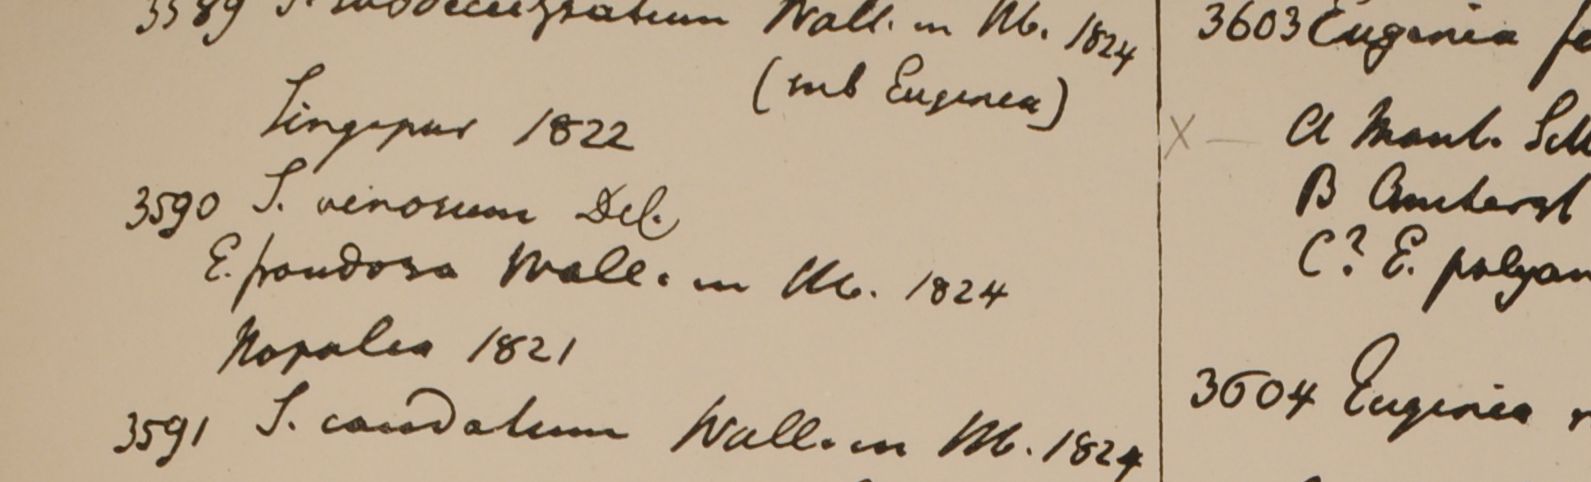 3589 S. subdecussatum Wall. in Hb. 1824
(sub Eugenia)
Singapur 1822
3590 S. venosum Del.
E. frondosa Wall. in Hb. 1824
Nopalia 1821
3591 S. caudatum Wall. in Hb. 1824
3603 Eugenia
X — A Mont.
B Amherst
C? E. polyan
3604 Eugenia